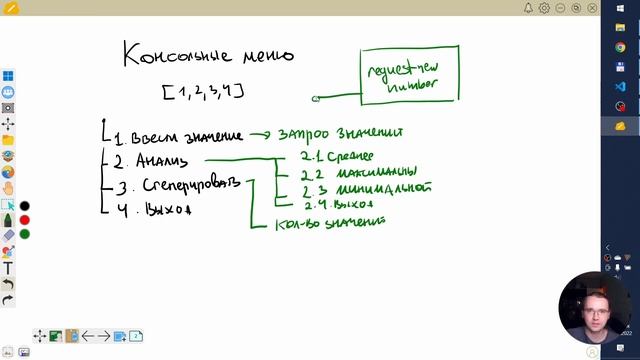 Консольные меню
[1,2,3,4]
request-new
number
1. Ввести значение → запрос значений
2. Анализ
2.1 Среднее
2.2 максимальны
2.3 минимальной
2.4. Выход
3. Сгенерировать
4. Выход
Кол-во значений